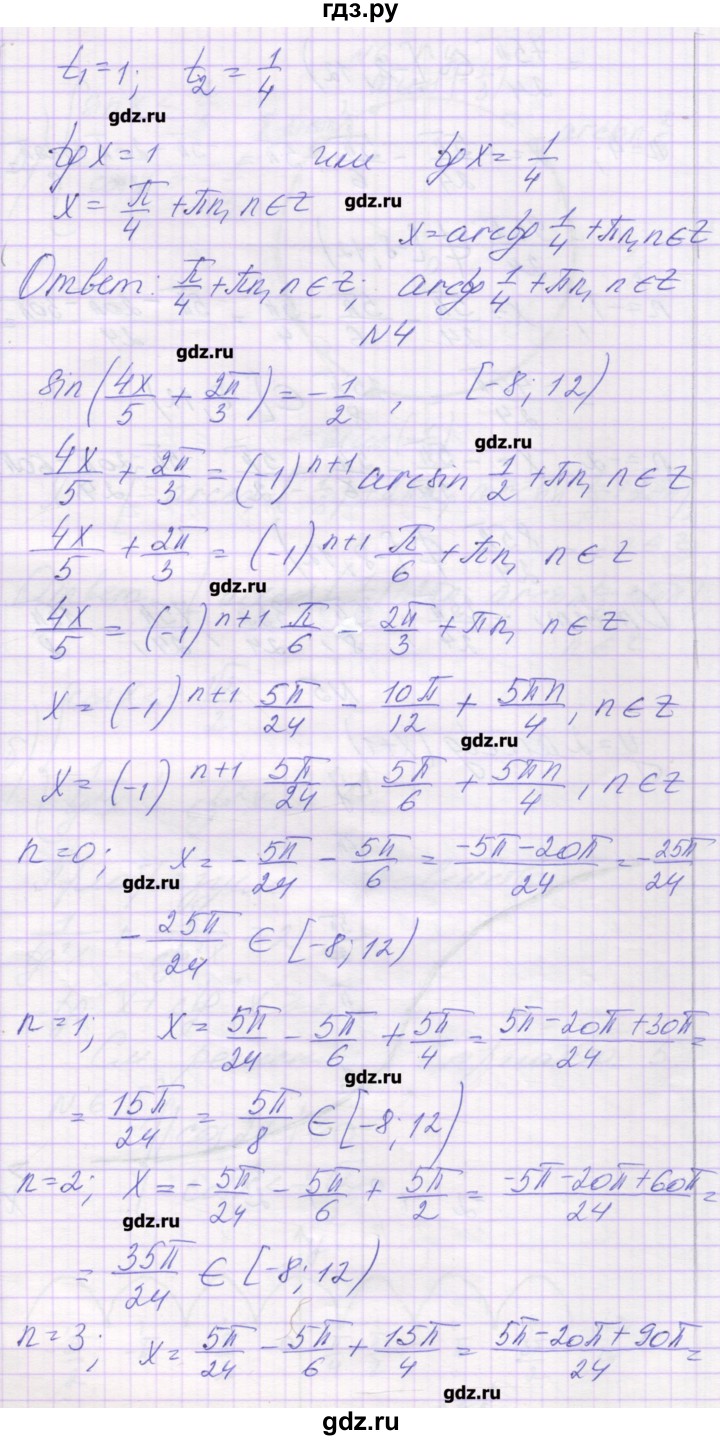 гдз.ру
t₁ = 1; t₂ = 1/4
gdz.ru
tg x = 1 или tg x = 1/4
x = π/4 + πn, n ∈ Z gdz.ru
x = arctg 1/4 + πn, n ∈ Z
Ответ: π/4 + πn, n ∈ Z; arctg 1/4 + πn, n ∈ Z
N4
gdz.ru
sin(4x/5 + 2π/3) = -1/2, [-8; 12)
gdz.ru
4x/5 + 2π/3 = (-1)^(n+1) arcsin 1/2 + πn, n ∈ Z
4x/5 + 2π/3 = (-1)^(n+1) π/6 + πn, n ∈ Z
gdz.ru
4x/5 = (-1)^(n+1) π/6 - 2π/3 + πn, n ∈ Z
x = (-1)^(n+1) 5π/24 - 10π/12 + 5πn/4, n ∈ Z
gdz.ru
x = (-1)^(n+1) 5π/24 - 5π/6 + 5πn/4, n ∈ Z
n = 0; x = - 5π/24 - 5π/6 = (-5π - 20π)/24 = - 25π/24
gdz.ru
- 25π/24 ∈ [-8; 12)
n = 1; x = 5π/24 - 5π/6 + 5π/4 = (5π - 20π + 30π)/24 =
gdz.ru
= 15π/24 = 5π/8 ∈ [-8; 12)
n = 2; x = - 5π/24 - 5π/6 + 5π/2 = (-5π - 20π + 60π)/24 =
gdz.ru
= 35π/24 ∈ [-8; 12)
n = 3; x = 5π/24 - 5π/6 + 15π/4 = (5π - 20π + 90π)/24 =
gdz.ru
gdz.ru